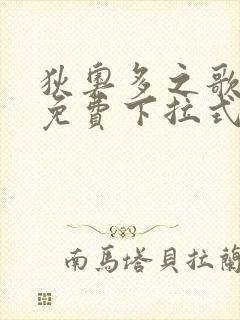 狄奧多之歌
免費下拉式
南馬塔貝拉蘭